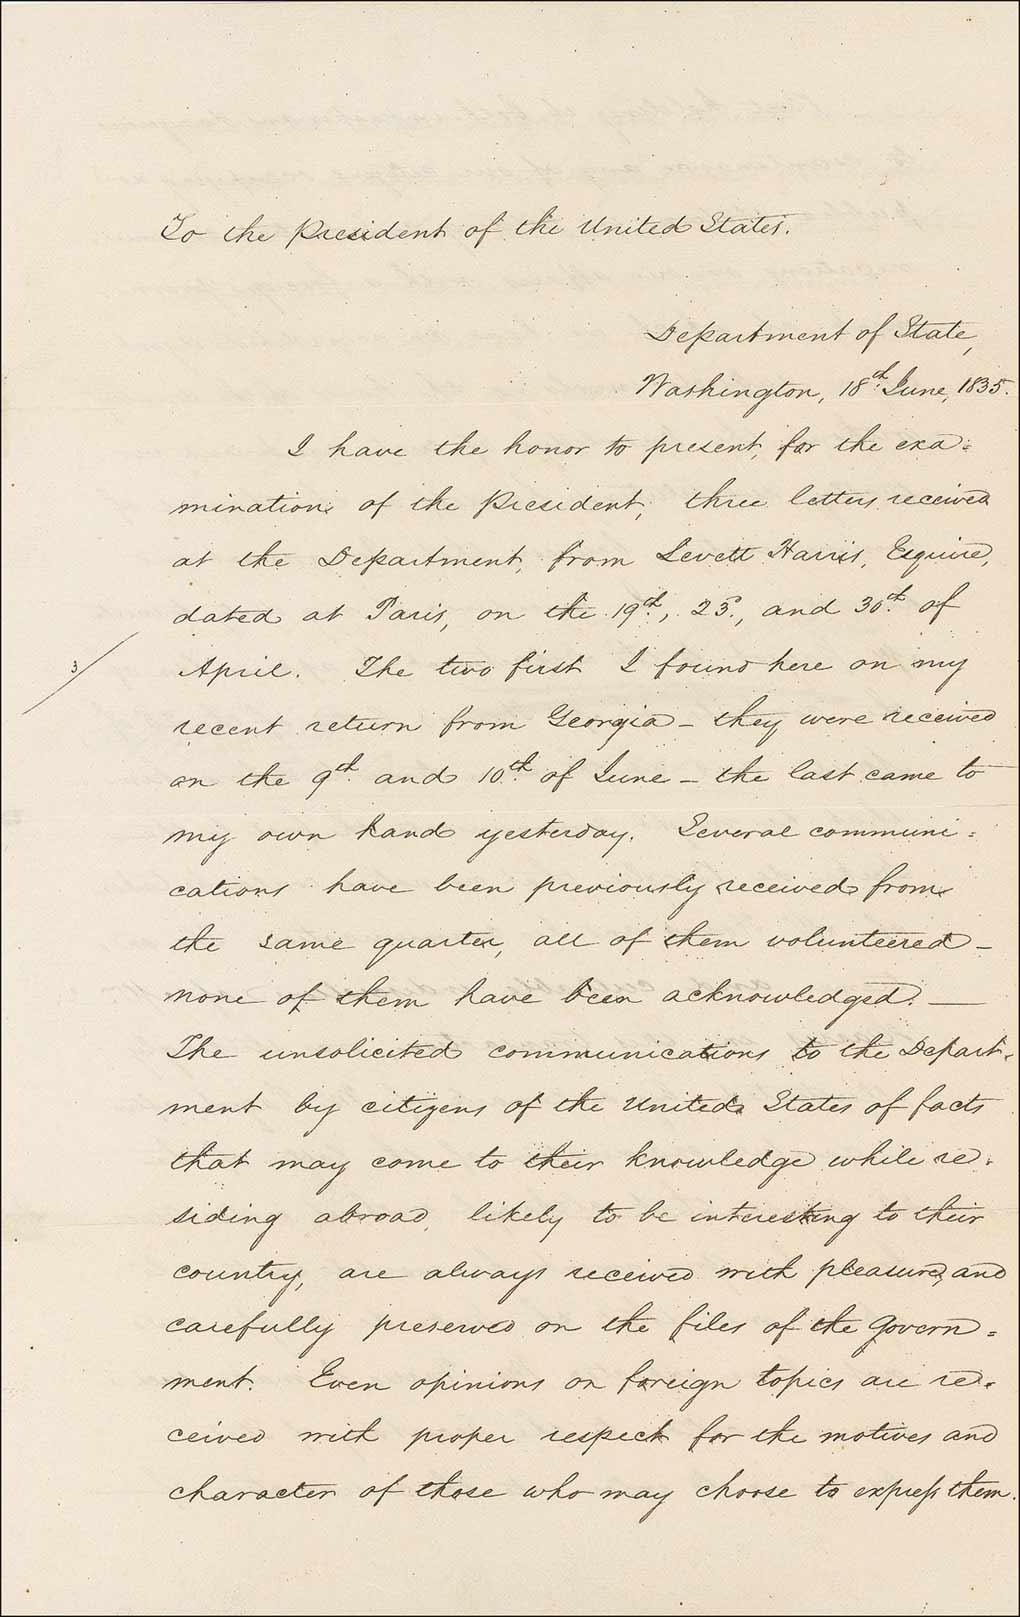 To the President of the United States.
Department of State,
Washington, 18th June, 1835.
I have the honor to present, for the exa=
mination of the President, three letters received
at the Department, from Levett Harris, Esquire,
dated at Paris, on the 19th, 23d, and 30th of
3/
April. The two first I found here on my
recent return from Georgia – they were received
on the 9th and 10th of June – the last came to
my own hand yesterday. Several communi=
cations have been previously received from
the same quarter, all of them volunteered –
none of them have been acknowledged. —
The unsolicited communications to the Depart=
ment by citizens of the United States of facts
that may come to their knowledge while re=
siding abroad, likely to be interesting to their
country, are always received with pleasure, and
carefully preserved on the files of the Govern=
ment. Even opinions on foreign topics are re=
ceived with proper respect for the motives and
character of those who may choose to express them.